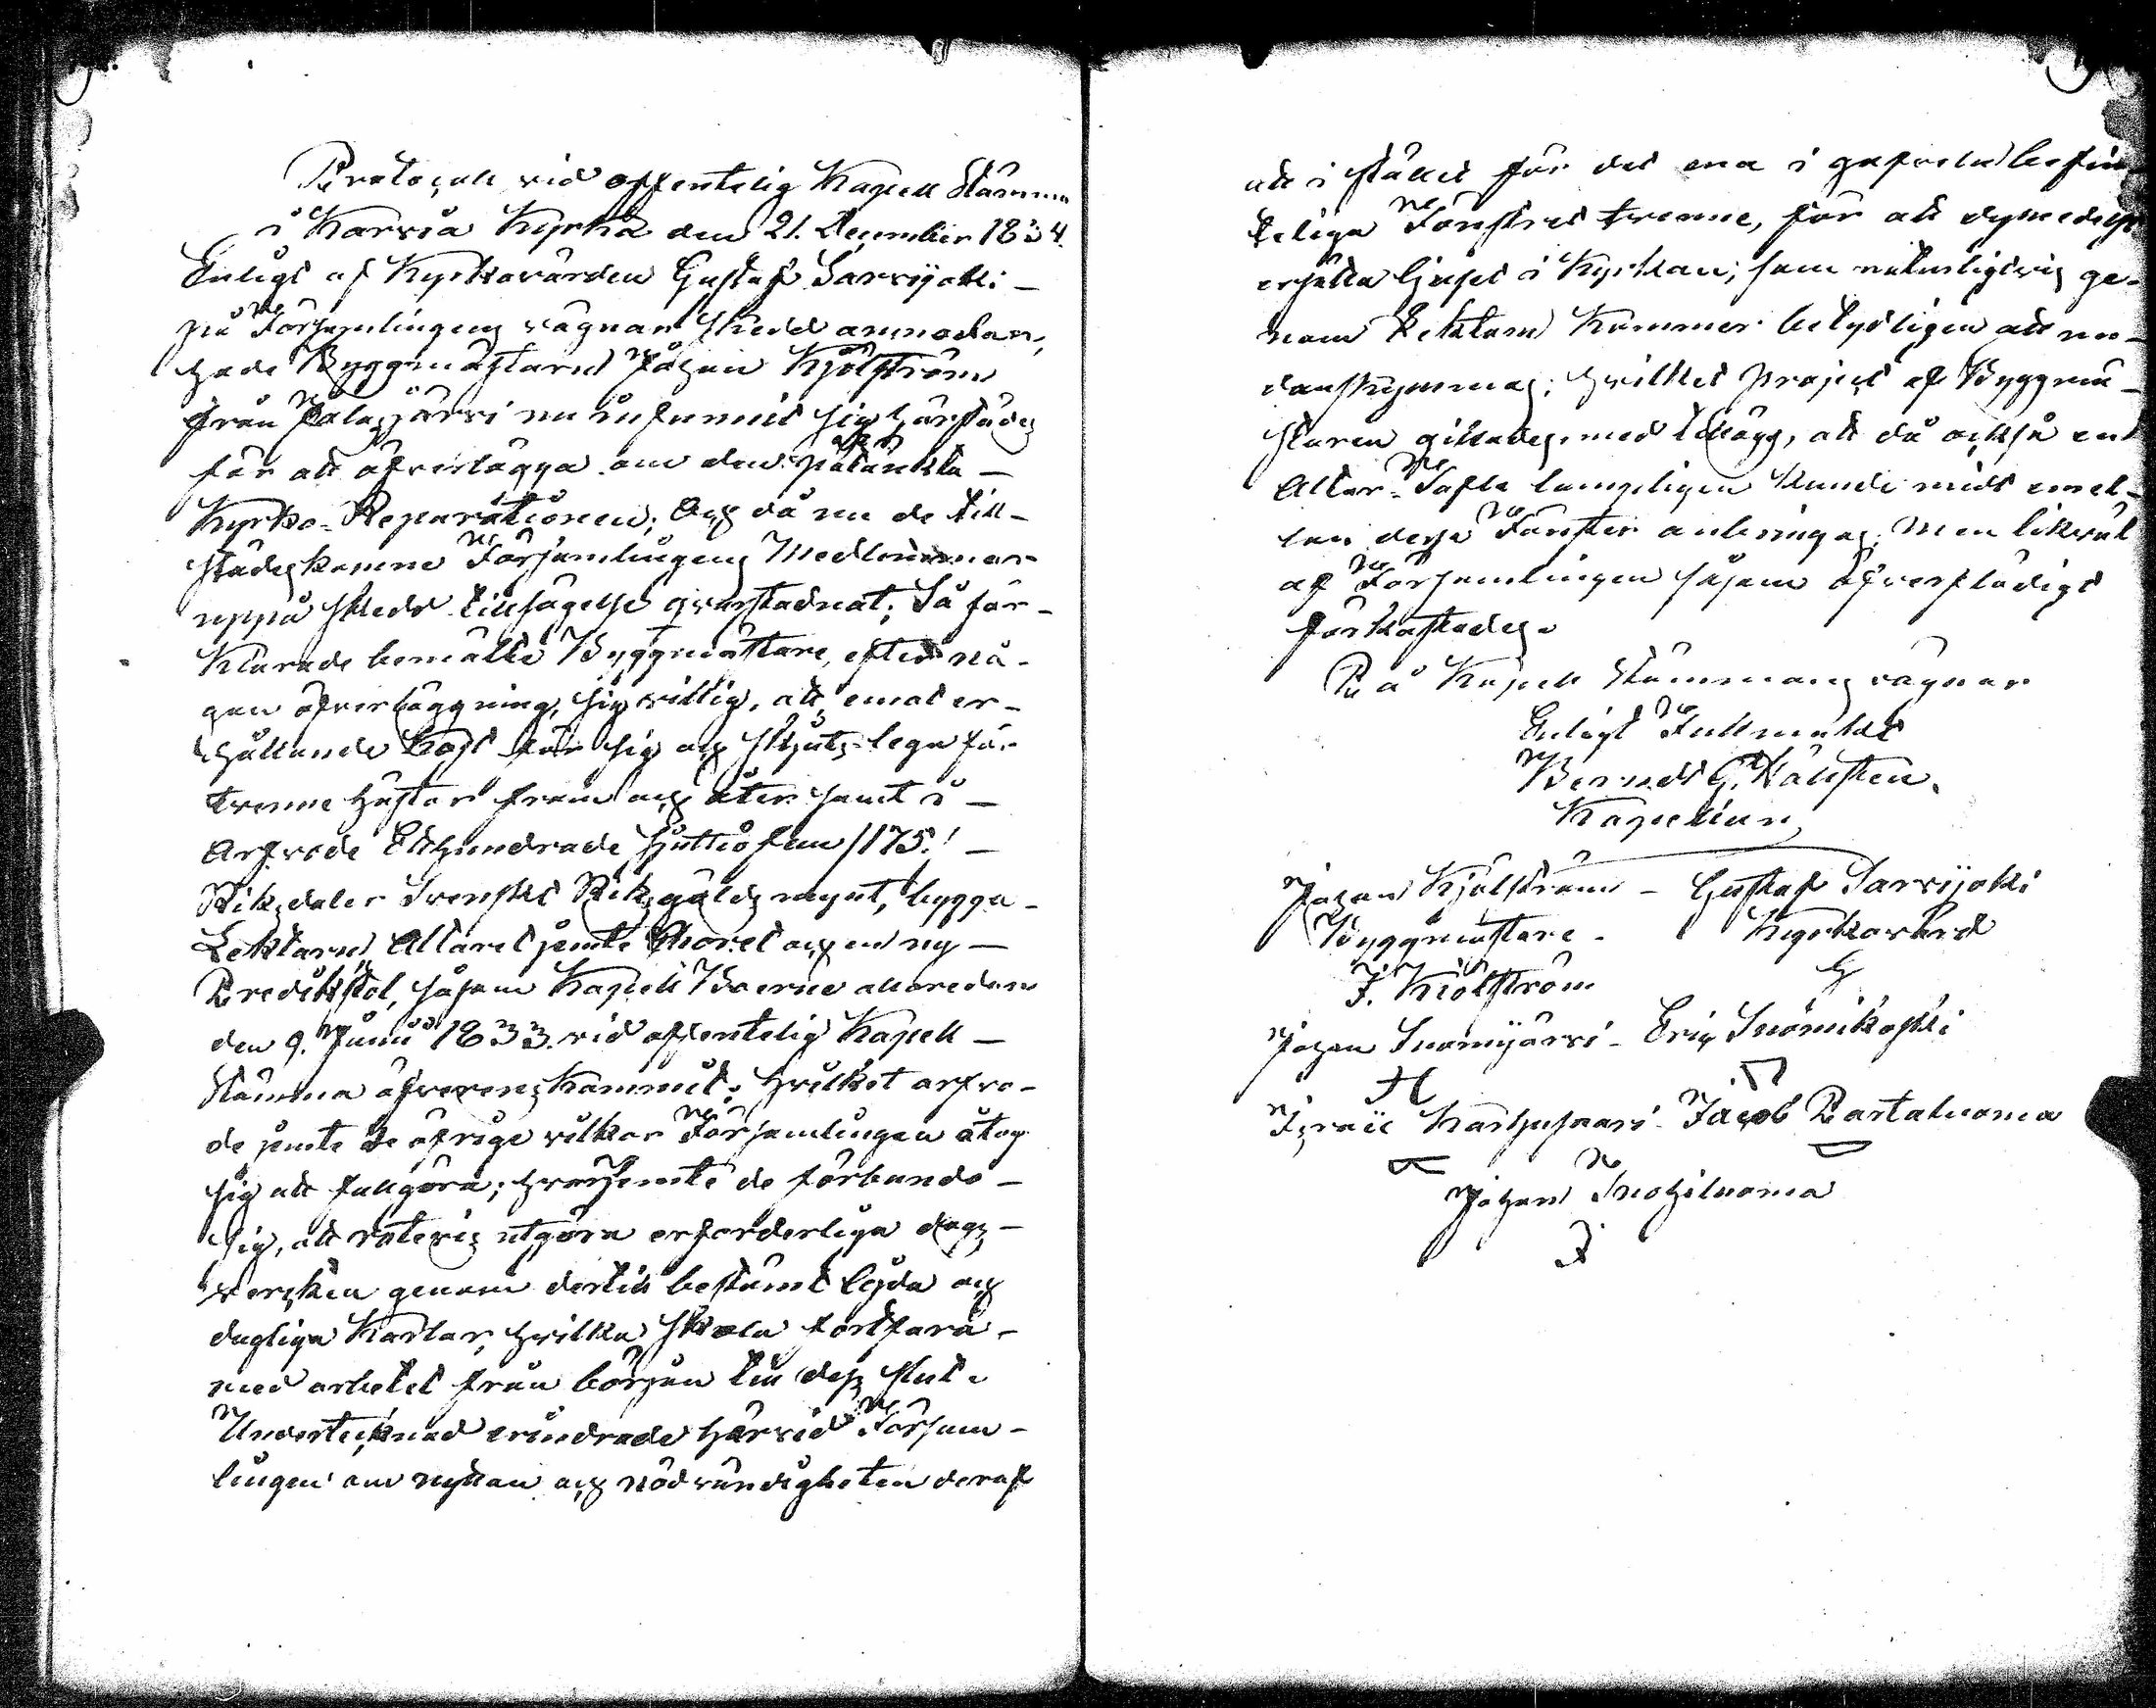 Protocoll vid offentelig Kapell Stämma
i Karvia Kyrka den 21. December 1834.
Enligt af Kyrkovärden Gustaf Sarvijoki
på Församlingens vägnar skedd anmodan,
hade Byggmästaren Johan Kjölström
från Jalasjärvi nu infunnit sig härstädes
för att öfverlägga om den påtänkta
Kyrko-Reparationen; Och då nu de till-
städeskomne Församlingens Medlemmar
uppå skedd tillsägelse qvarstadnat; Så för-
klarade bemälte Byggmästare, efter nå-
gon öfverläggning, sig villig, att, emot er-
hållande kost för sig och skjuts-lega för
trenne hästar fram och åter samt i
Arfvode Etthundrade sjuttiofem /175/
Riksdaler Svenskt Riksgälds mynt, bygga
Lektarn, Altaret jemte Choret och en ny
Predikstol, såsom Kapell Boerne allaredan
den 9. Junii 1833. vid offentelig Kapell
Stämma öfverenskommit; hvilket arfvo-
de jemte de öfrige vilkor Församlingen åtog
sig att fullgöra; hvarjemte de förbundo
sig, att rotevis utgöra erforderliga dags-
verken genom dertill bestämt lejda och
dugliga Karlar, hvilka skola fortfara
med arbetet från början till dess slut.
Undertecknad erindrade härvid Försam-
lingen om nyttan och nödvändigheten deraf
att i stället för det ena i gafveln befin-
teliga Fönstret trenne, för att dymedelst
ersätta ljuset i Kyrkan; som naturligtvis ge-
nom Lektarn kommer betydligen att un-
danskymmas; hvilket project af Byggmä-
staren gillades med tillägg, att då också en
Altar-Tafla lämpeligen kunde midt emel-
lan dessa Fönster anbringas; Men likväl
af Församlingen såsom öfverflödigt
förkastades.
På Kapell Stämmans vägnar
Enligt Fullmakt
Bernds G. Hällsten.
Kapellan
Johan Kjölström - Gustaf Sarvijoki
Byggmästare - Kyrkovärd
J. Kiölström
Johan Suomijärvi - Eric Suomikoski
Israël Karhusaari - Jacob Rastaluoma
Johan Suohiluoma